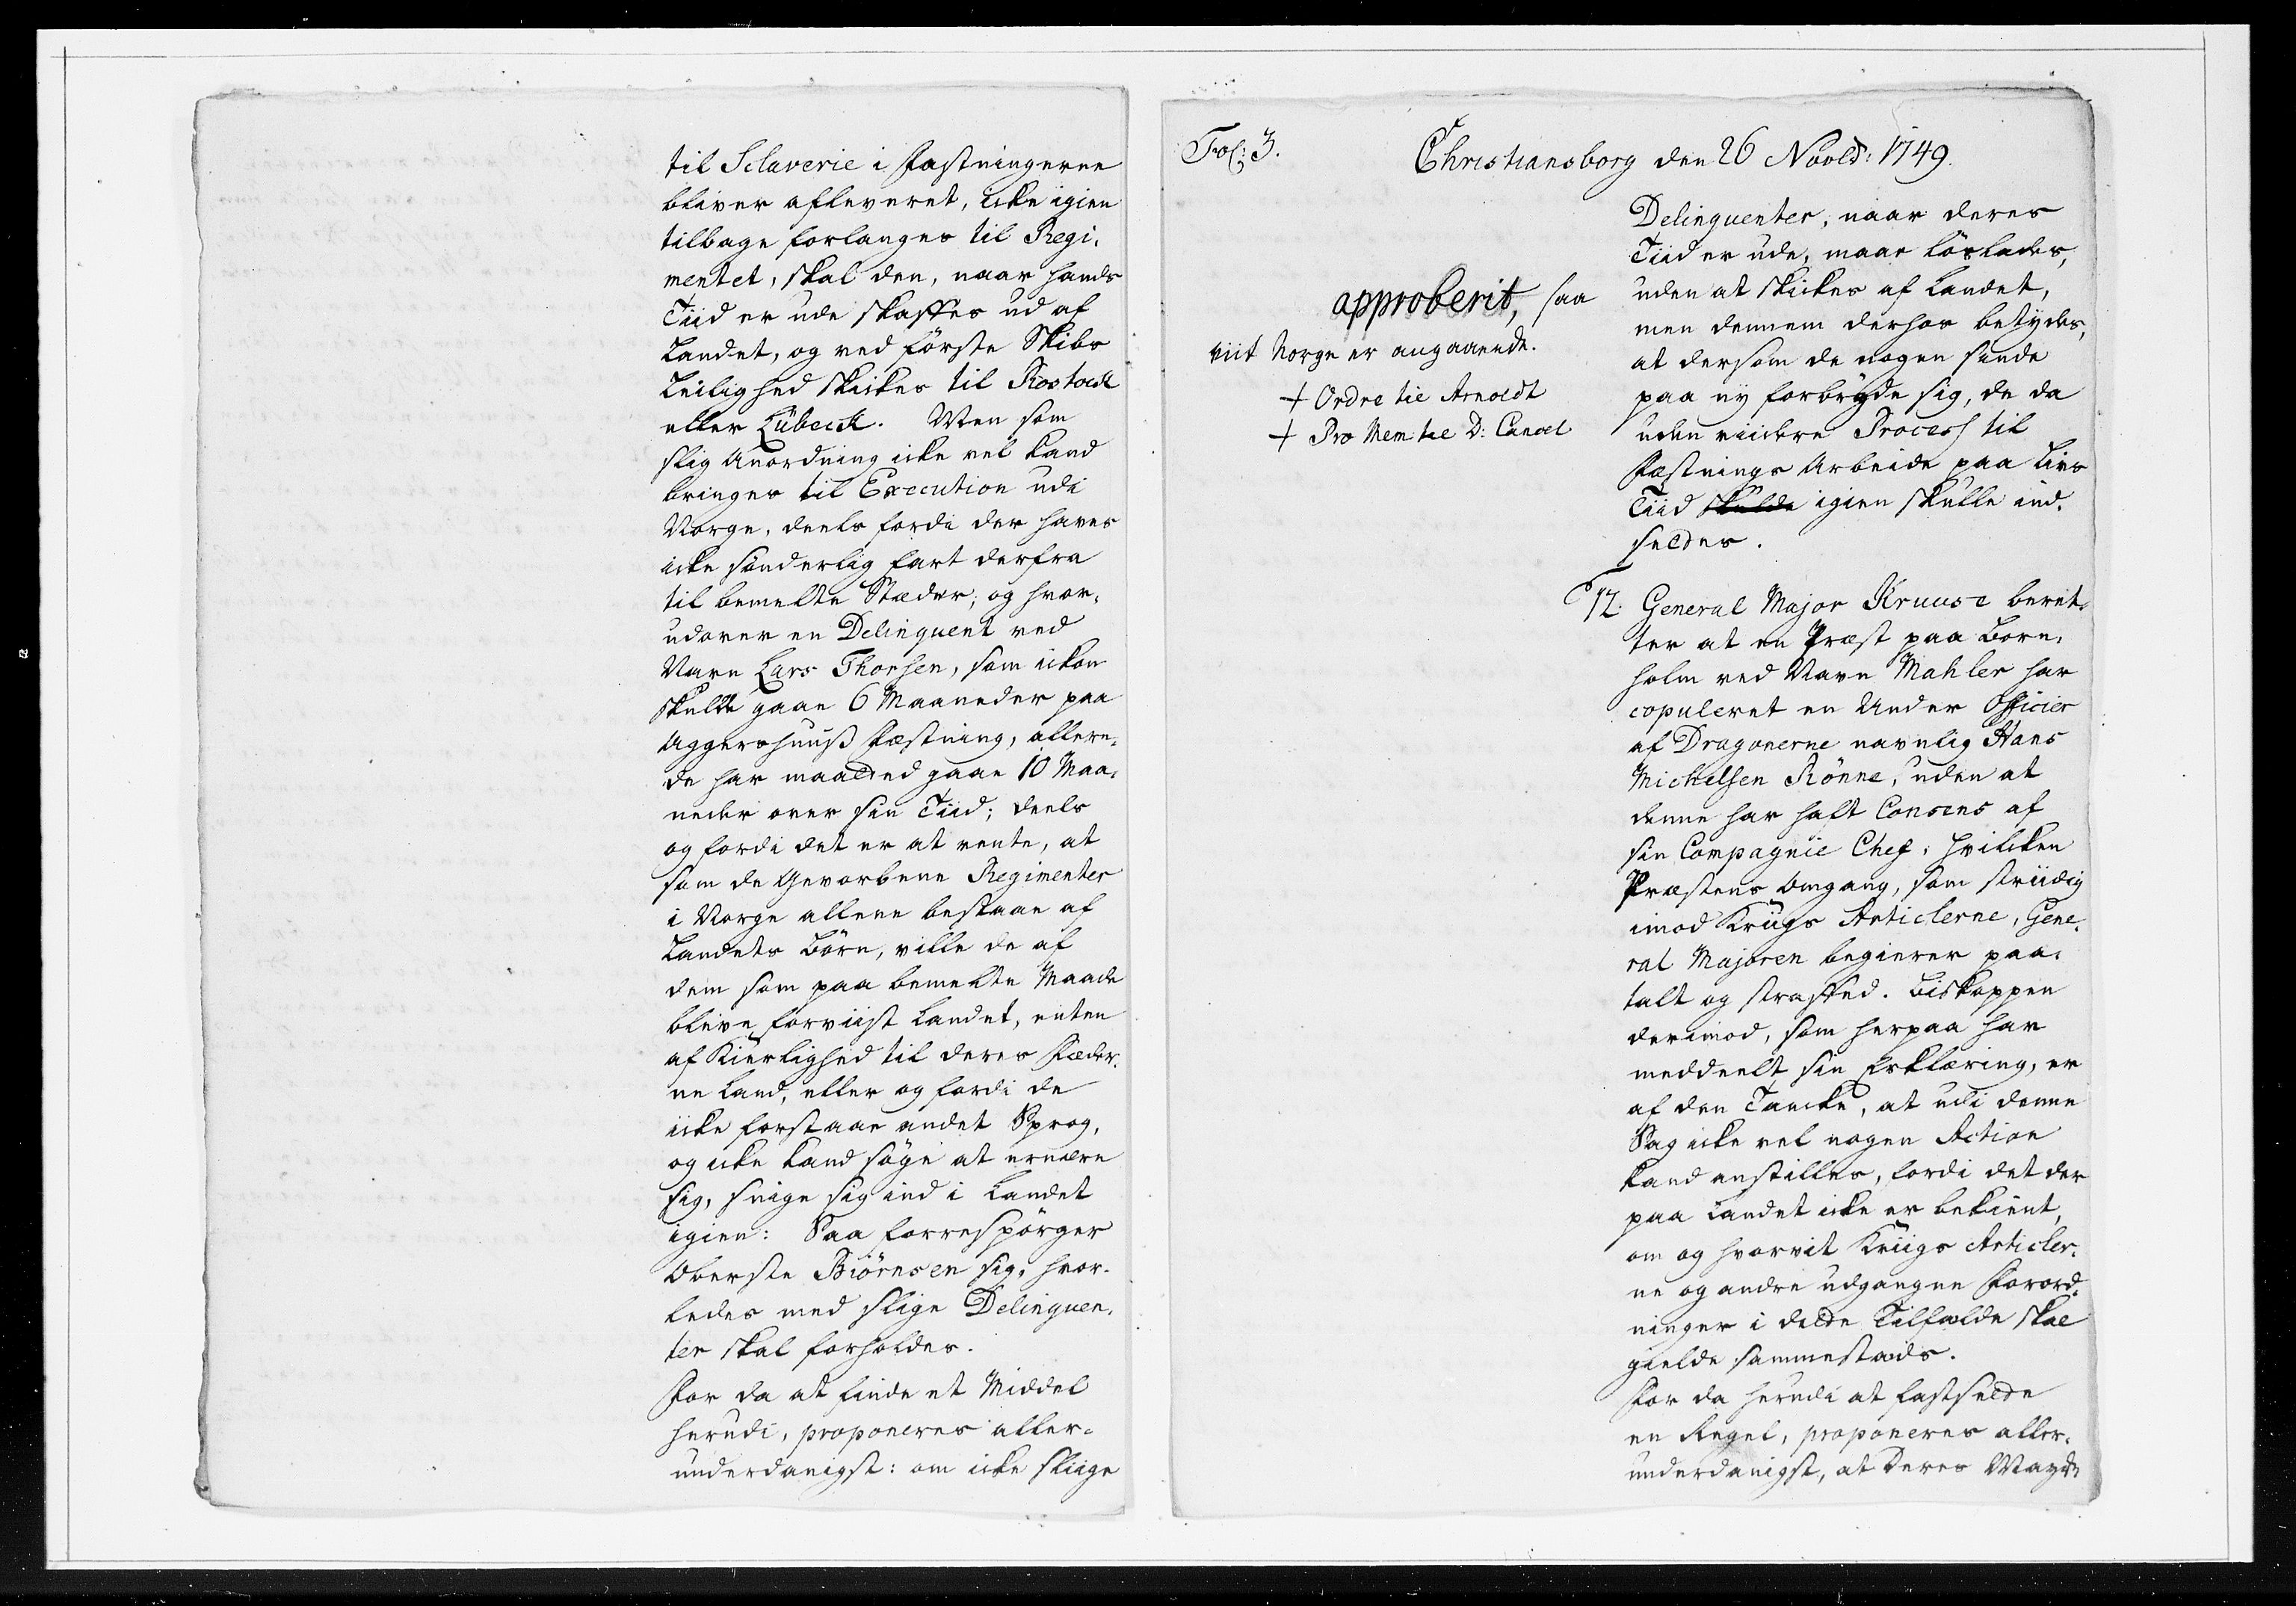 til Sclaverie i Fæstningerne
bliver afleveret, icke igien
tilbage forlanges til Regi-
mentet, skal den, naar hands
Tiid er ude skaffes ud af
Landet, og ved förste Skibs
Leilighed skickes til Rostock
eller Lübeck. Men som
slig Anordning icke vel kand
bringes til Execution udi
Norge, deels fordi der haves
icke sönderlig fart derfra
til bemelte Stæder, og hvor-
udover en Delinquent ved
Navn Lars Thorsen, som ickon
skulle gaae 6 Maaneder paa
Aggershuuß Fæstning, allere-
de har maatted gaae 10 Maa-
neder over sin Tiid; deels
og fordi det er at vente, at
som de Gevorbene Regimenter
i Norge allene bestaae af
Landets Börn, ville de af
dem som paa bemelte Maade
blive forviist Landet, enten
af Kierlighed til deres Fæder-
ne Land, eller og fordi de
icke forstaae andet Sprog,
og icke kand søge at ernære
sig, snige sig ind i Landet
igien: Saa forrespörger
Oberste Biörnsen sig, hvor-
ledes med slige Delinquen-
ter skal forholdes.
For da at finde et Middel
herudi, proponeres aller-
underdanigst: om icke sliige
Fol: 3.
Christiansborg den 26 Novbr: 1749.
Delinquenter, naar deres
Tiid er ude, maae löslades,
uden at skickes af Landet,
men dennem derhos betydes,
at dersom de nogen sinde
paa ny forbryde sig, de da
uden viidere Process til
Fæstnings Arbeide paa Livs
Tiid skulde igien skulle ind-
settes.
approberit, saa
viit Norge er angaaende.
+ Ordre til Arnoldt
+ Pro Mem til D: Cancel
12. General Major Kruuse beret-
ter at en Præst paa Born-
holm ved Navn Mahler har
copuleret en Under Officier
af Dragonerne navnlig Hans
Michelsen Rönne, uden at
denne har haft Consens af
sin Compagnie Chef, hvilcken
Præstens Omgang, som striidig
imod Kriigs Articlerne, Gene-
ral Majoren begierer paa-
talt og straffed. Biskoppen
derimod, som herpaa har
meddeelt sin Erklæring, er
af den Tancke, at udi denne
Sag icke vel nogen Action
kand anstilles, fordi det der
paa Landet icke er bekient,
om og hvorvit Kriigs Articler-
ne og andre udgangne Forord-
ninger i dette Tilfælde skal
gielde sammestæds.
For da herudi at fastsette
en Regel, proponeres aller-
underdanigst, at Deres Mayts